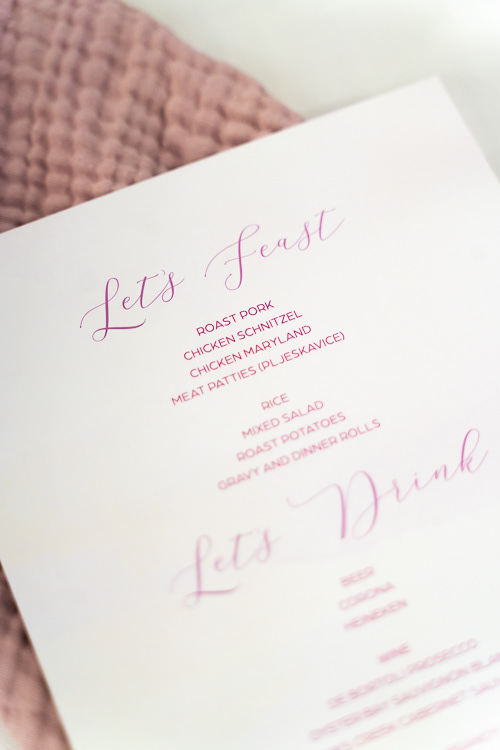 Let's Feast
ROAST PORK
CHICKEN SCHNITZEL
CHICKEN MARYLAND
MEAT PATTIES (PLJESKAVICE)
RICE
MIXED SALAD
ROAST POTATOES
GRAVY AND DINNER ROLLS
Let's Drink
BEER
CORONA
HEINEKEN
WINE
DE BORTOLI PROSECCO
OYSTER BAY SAUVIGNON
CREEK CABERNET